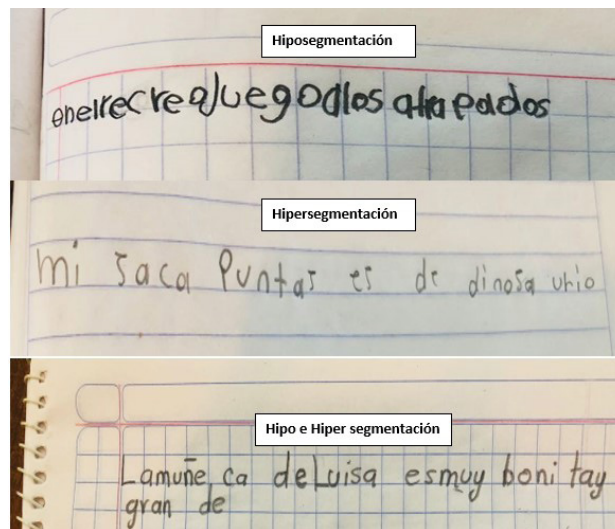 Hiposegmentación
enelrecreaJuegoalos atrapados
Hipersegmentación
mi saca Puntas es de dinosa urio
Hipo e Hiper segmentación
Lamuñe ca deLuisa esmuy boni tay
gran de